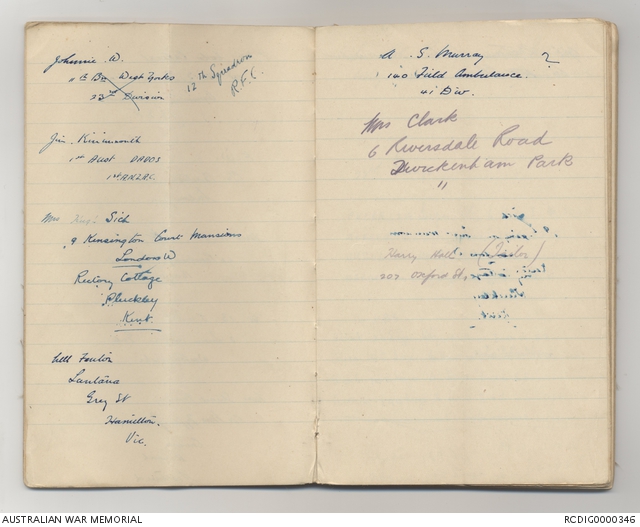 Johnnie W.
11th Bn West Yorks
23rd Division
12th Squadron
R.F.C.
Jim
1st Aust DADOS
1st ANZAC.
Mrs Sich
9 Kensington Court Mansions
London W
Rectory Cottage
Pluckley
Kent
Fenton
Lantana
Grey St
Hamilton.
Vic.
A S. Murray 2
140 Field Ambulance.
41 Div.
Mrs Clark
6 Riversdale Road
Twickenham Park
"
Harry Hall (Tailor)
207 Oxford St,
AUSTRALIAN WAR MEMORIAL
RCDIG0000346